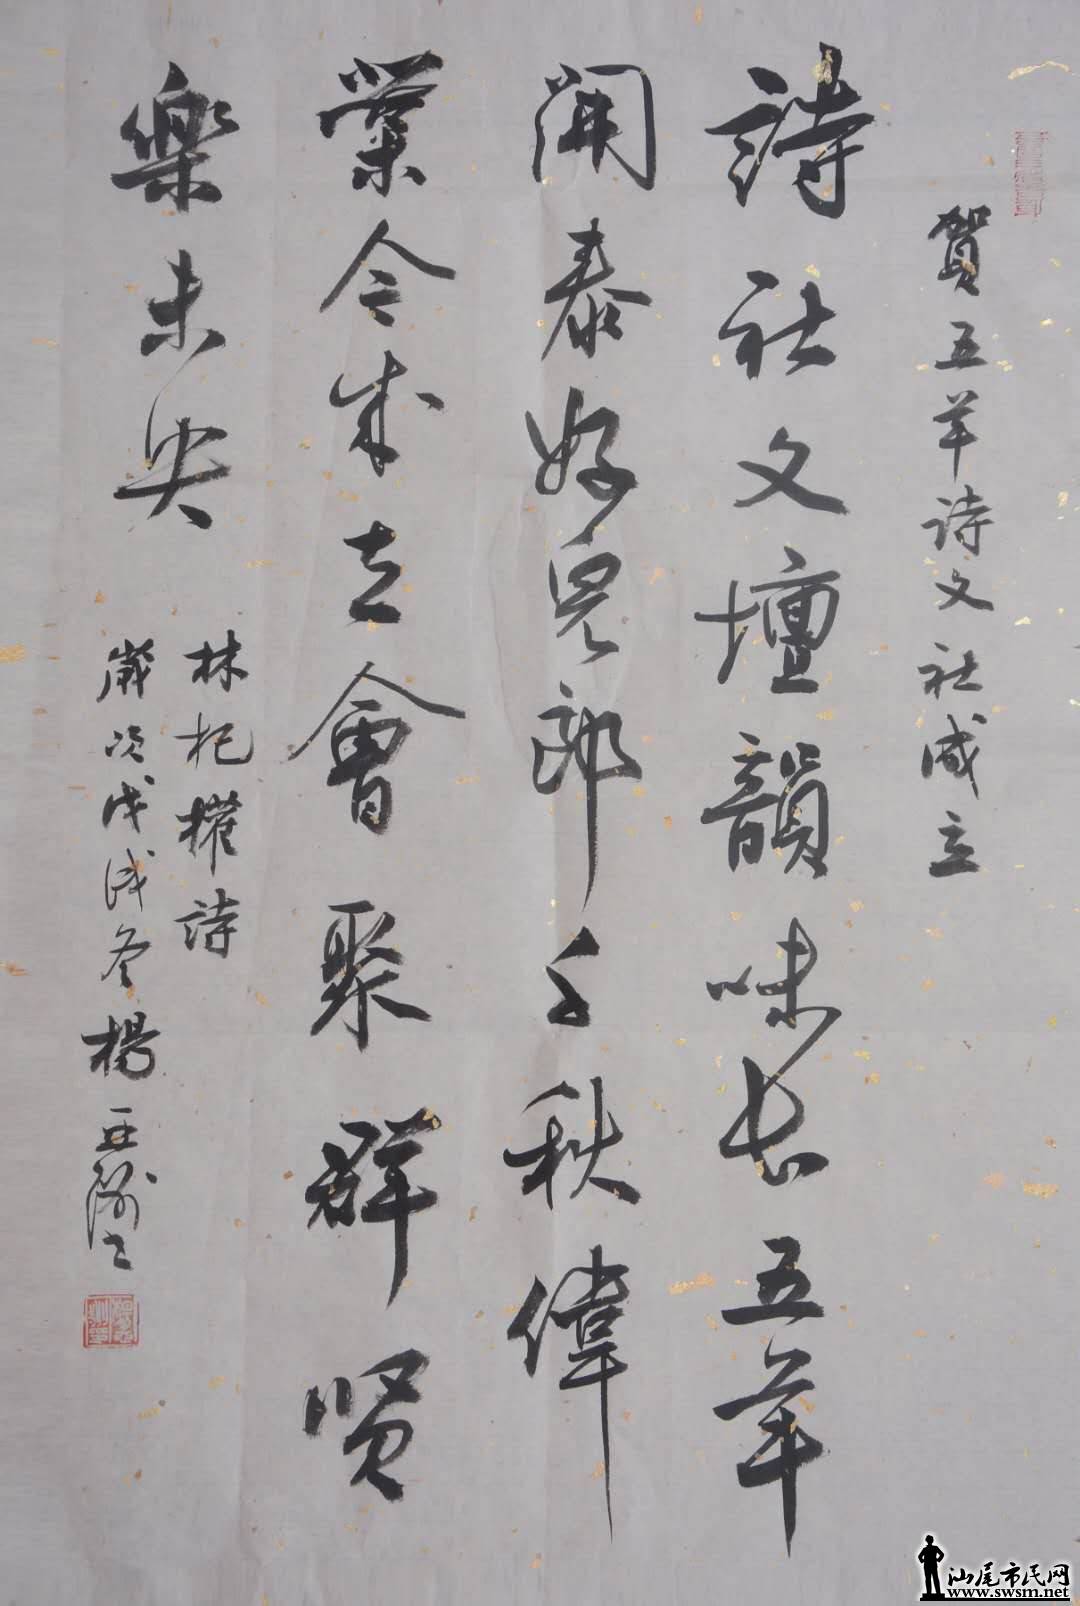 賀五羊诗文社成立
詩社文壇韻味长五羊
開泰好兒郎千秋偉
業今成立會聚群賢
樂未央
林杞權詩
歲次戊戌冬楊亚
汕尾市民网
www.swsm.net